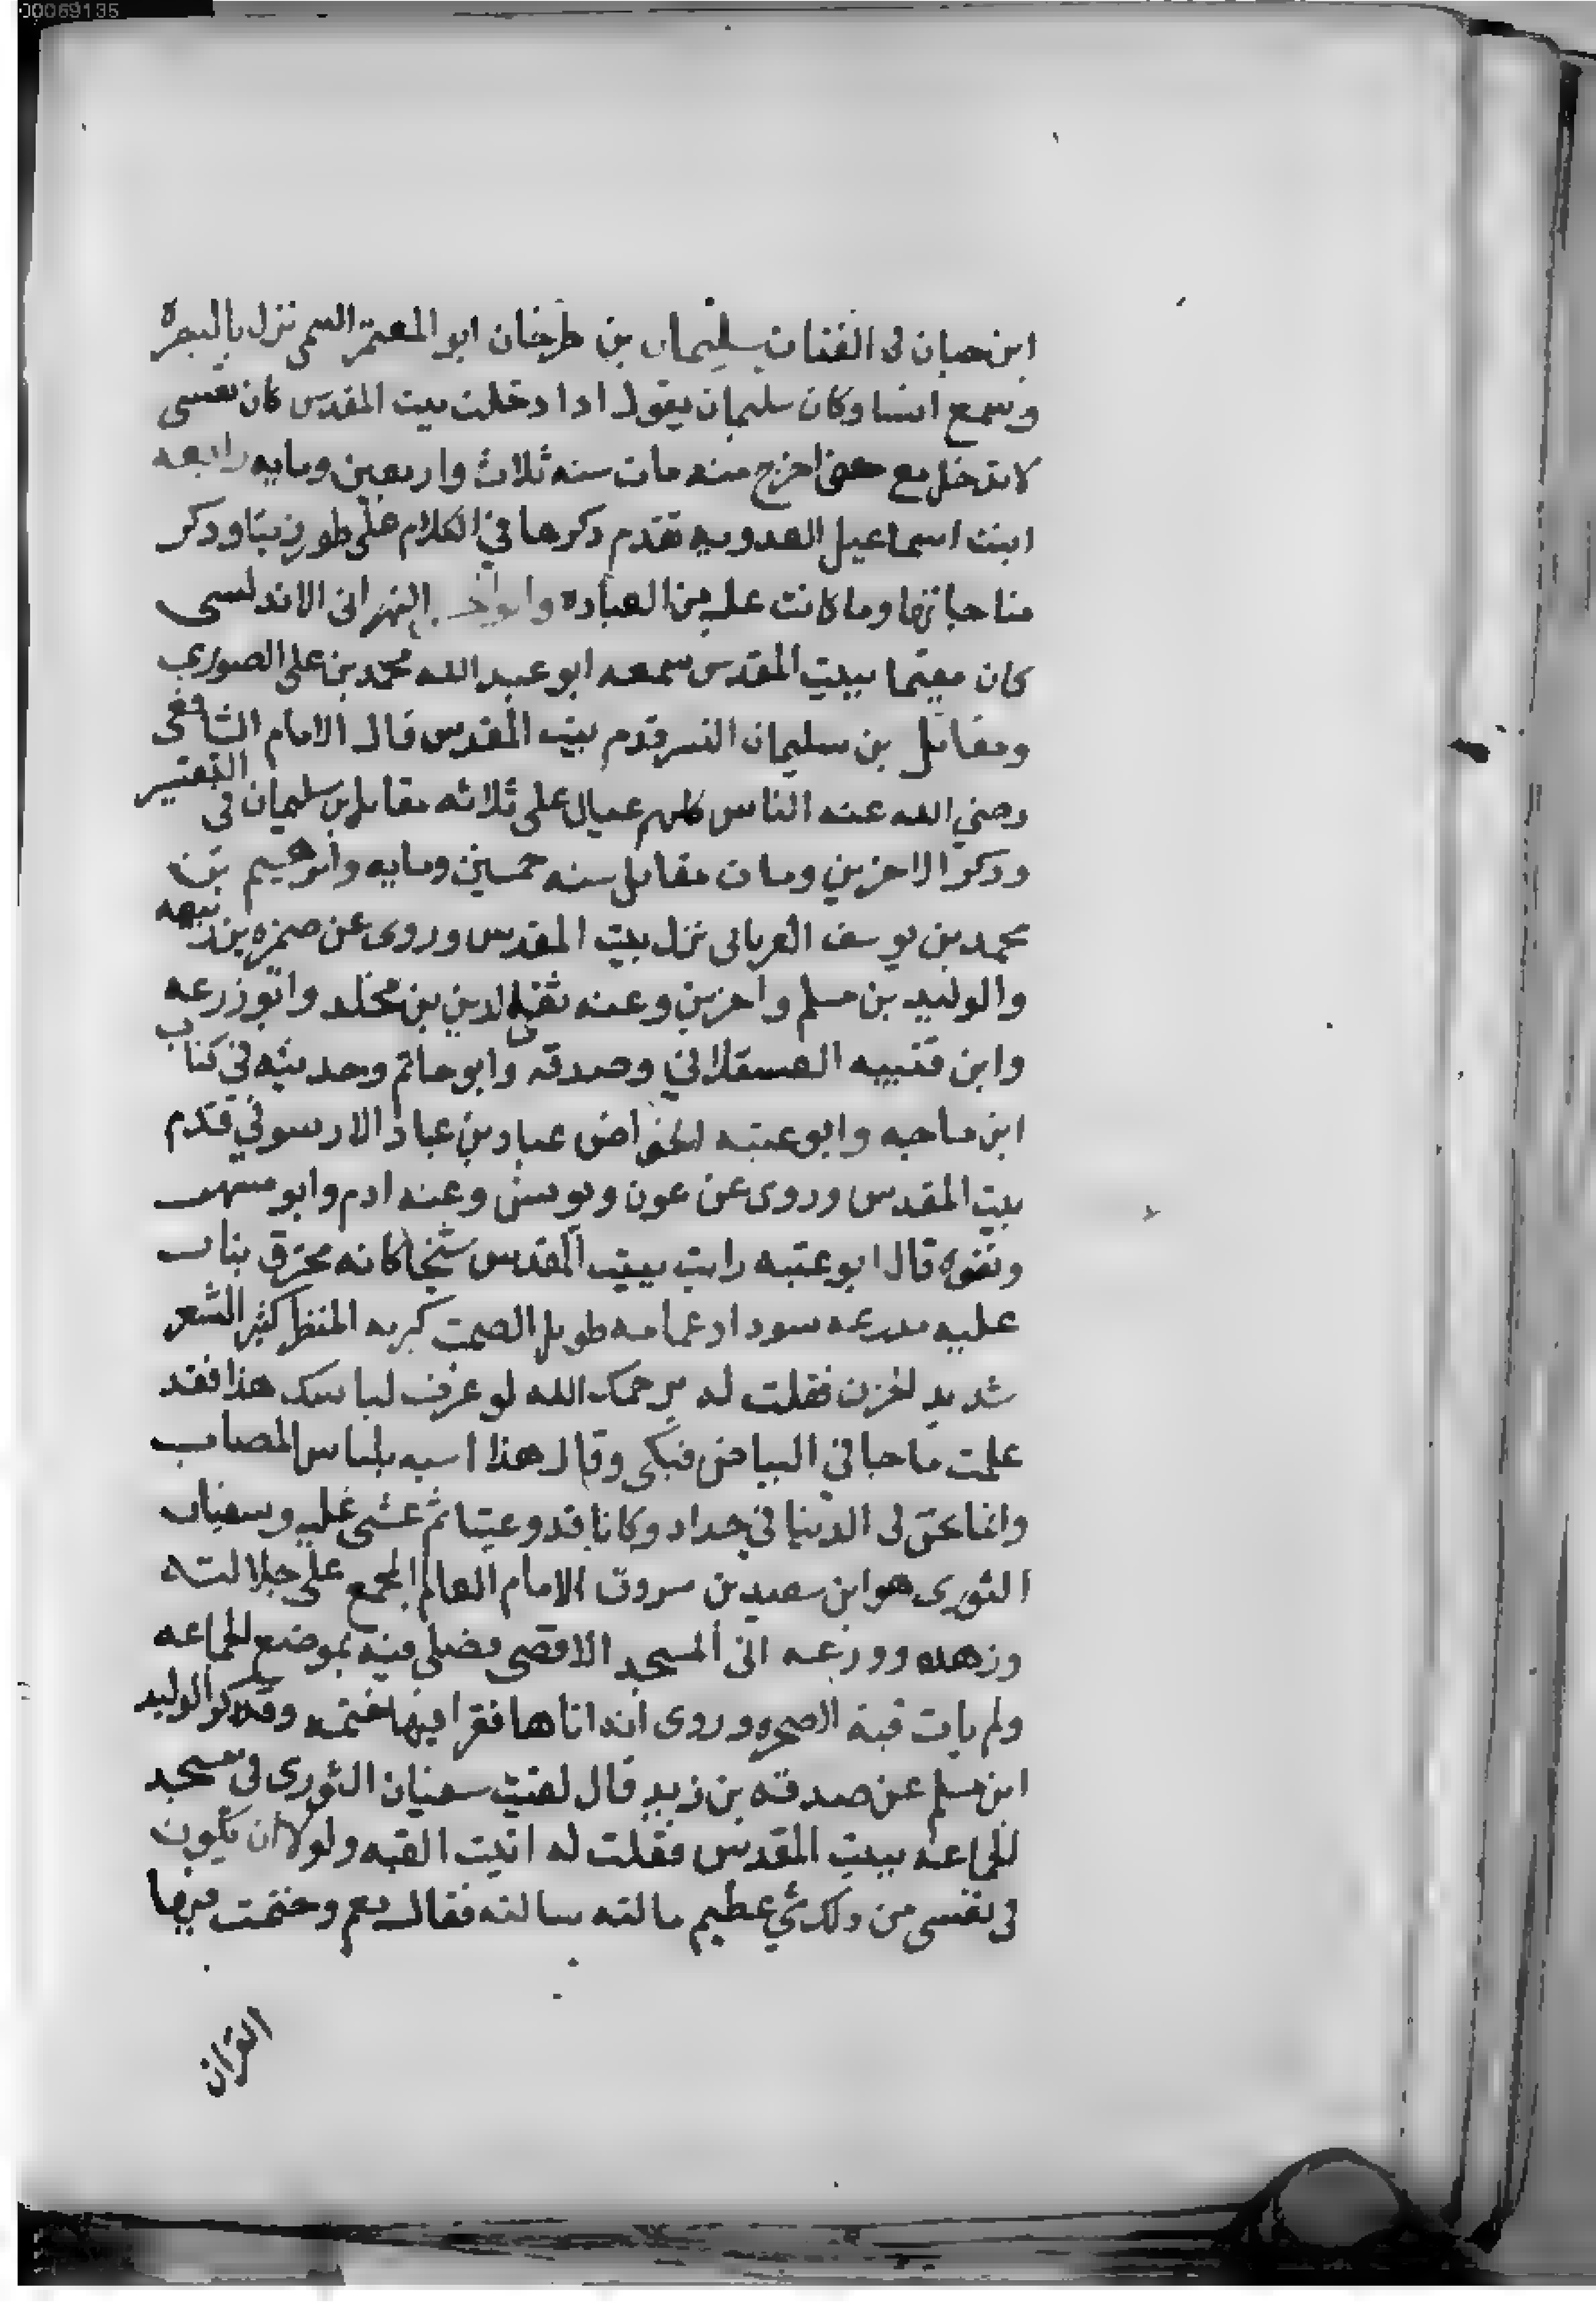 00069135
ابن حبان في الثقات سليمان بن طرخان ابو المعتمر التيمي نزل بالبصره
وسمع انسا وكان سليمان يقول اذا دخلت بيت المقدس كان نفسي
لا تدخل مع حتى اخرج منه مات سنه ثلاث واربعين ومايه رابعه
ابنت اسماعيل العدويه تقدم ذكرها في الكلام على طور زيتا وذكر
مناجاتها وما كانت عليه من العباده النهراني الاندلسي
كان مقيما ببيت المقدس سمعه ابو عبد الله محمد بن علي الصوري
ومقاتل بن سليمان المفسر قدم بيت المقدس قال الامام الشافعي
رضي الله عنه الناس كلهم عيال على ثلاثه مقاتل بن سليمان في التفسير
وذكر الاخرين ومات مقاتل سنه خمسين ومايه وابرهيم بن
محمد بن يوسف الفريابي نزل بيت المقدس وروى عن ضمره بن ربيعه
والوليد بن مسلم واخرين وعنه تقي الدين بن مخلد وابو زرعه
وابن قتيبه العسقلاني وصدقه وابو حاتم وحديثه في كتاب
ابن ماجه وابو عتبه الخواص عباد بن عباد الارسوفي قدم
بيت المقدس وروى عن عون ويونس وعنه ادم وابو مسهر
وثقوه قال ابو عتبه رايت ببيت المقدس شيخا كانه محترق بنار
عليه مدرعه سودا وعمامه طويل الصمت كريه المنظر كثير الشعر
شديد الحزن فقلت له يرحمك الله لو غيرت لباسك هذا فقد
علمت ما جا في البياض فبكى وقال هذا اشبه بلباس المصاب
وانما نحن في الدنيا في حداد وكانا قد وعينا ثم غشي عليه وسفيان
الثوري هو ابن سعيد بن مسروق الامام العالم المجمع على جلالته
وزهده وورعه اتى المسجد الاقصى فصلى فيه بموضع الجماعه
ولم يات قبة الصخره وروى انه اتاها فقرا فيها ختمه وقد ذكر الوليد
ابن مسلم عن صدقه بن زيد قال لقيت سفيان الثوري في مسجد
الجماعه ببيت المقدس فقلت له اتيت القبه ولولا ان يكون
في نفسي من ذلك شي عظيم ما لته سالته فقال نعم وختمت فيها
القران